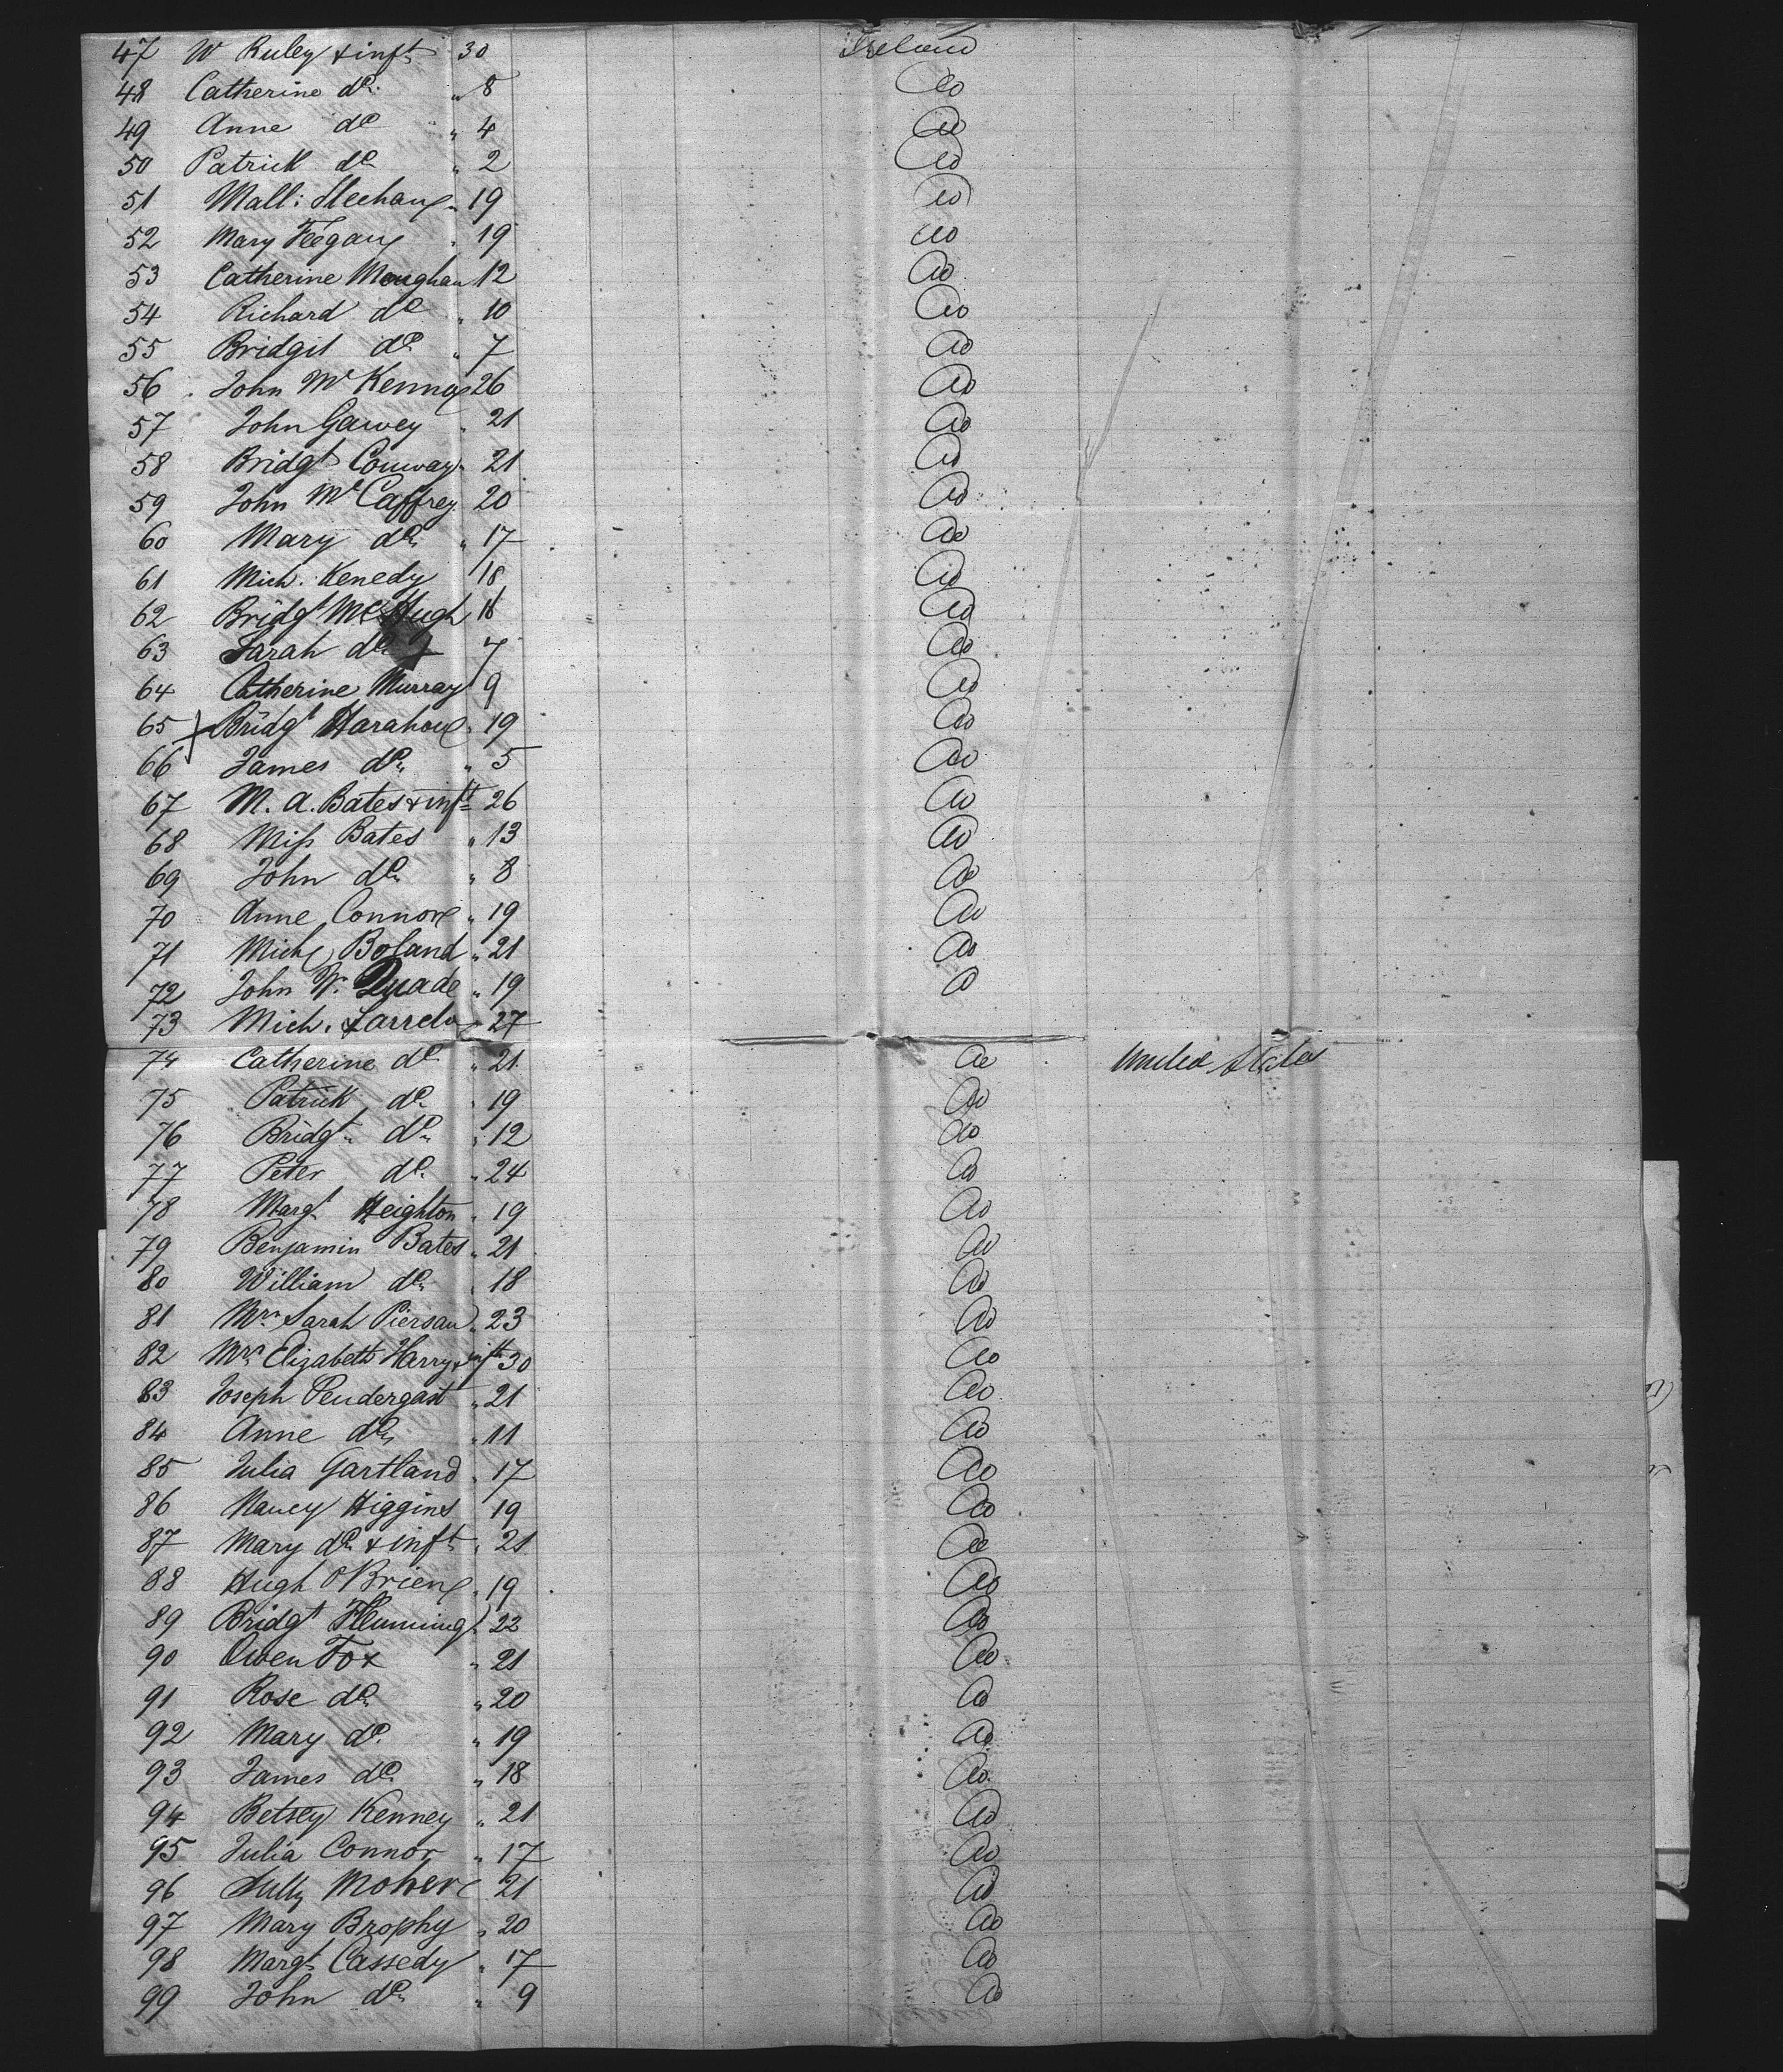 47 W Ruley & inft 30 Ireland
48 Catherine do " 8 do
49 Anne do " 4 do
50 Patrick do " 2 do
51 Mall: Meehan " 19 do
52 Mary Feegan " 19 do
53 Catherine Monghan 12 do
54 Richard do " 10 do
55 Bridgit do " 7 do
56 John McKenna 26 do
57 John Garvey " 21 do
58 Bridgt Conway " 21 do
59 John McCaffrey 20 do
60 Mary do " 17 do
61 Mich. Kenedy 18 do
62 Bridgt McHugh 18 do
63 Sarah do 7 do
64 Catherine Murray 9 do
65 Bridgt Harahon " 19 do
66 James do " 5 do
67 M. A. Bates & inft 26 do
68 Miss Bates " 13 do
69 John do " 8 do
70 Anne Connor " 19 do
71 Michl Boland " 21 do
72 John W. Quade " 19 do
73 Mich. 27
74 Catherine do " 21 do United States
75 Patrick do " 19 do
76 Bridgt do " 12 do
77 Peter do " 24 do
78 Margt Heighton " 19 do
79 Benjamin Bates " 21 do
80 William do " 18 do
81 Mrs Sarah Piersan " 23 do
82 Mrs Elizabeth Harry & inft 30 do
83 Joseph Pendergast " 21 do
84 Anne do " 11 do
85 Julia Gartland " 17 do
86 Nancy Higgins 19 do
87 Mary do & inft " 21 do
88 Hugh O'Brien " 19 do
89 Bridgt Flemming " 22 do
90 Owen Fox " 21 do
91 Rose do " 20 do
92 Mary do " 19 do
93 James do " 18 do
94 Betsey Kenney " 21 do
95 Julia Connor " 17 do
96 Moher 21 do
97 Mary Brophy " 20 do
98 Margt Cassedy " 17 do
99 John do " 9 do